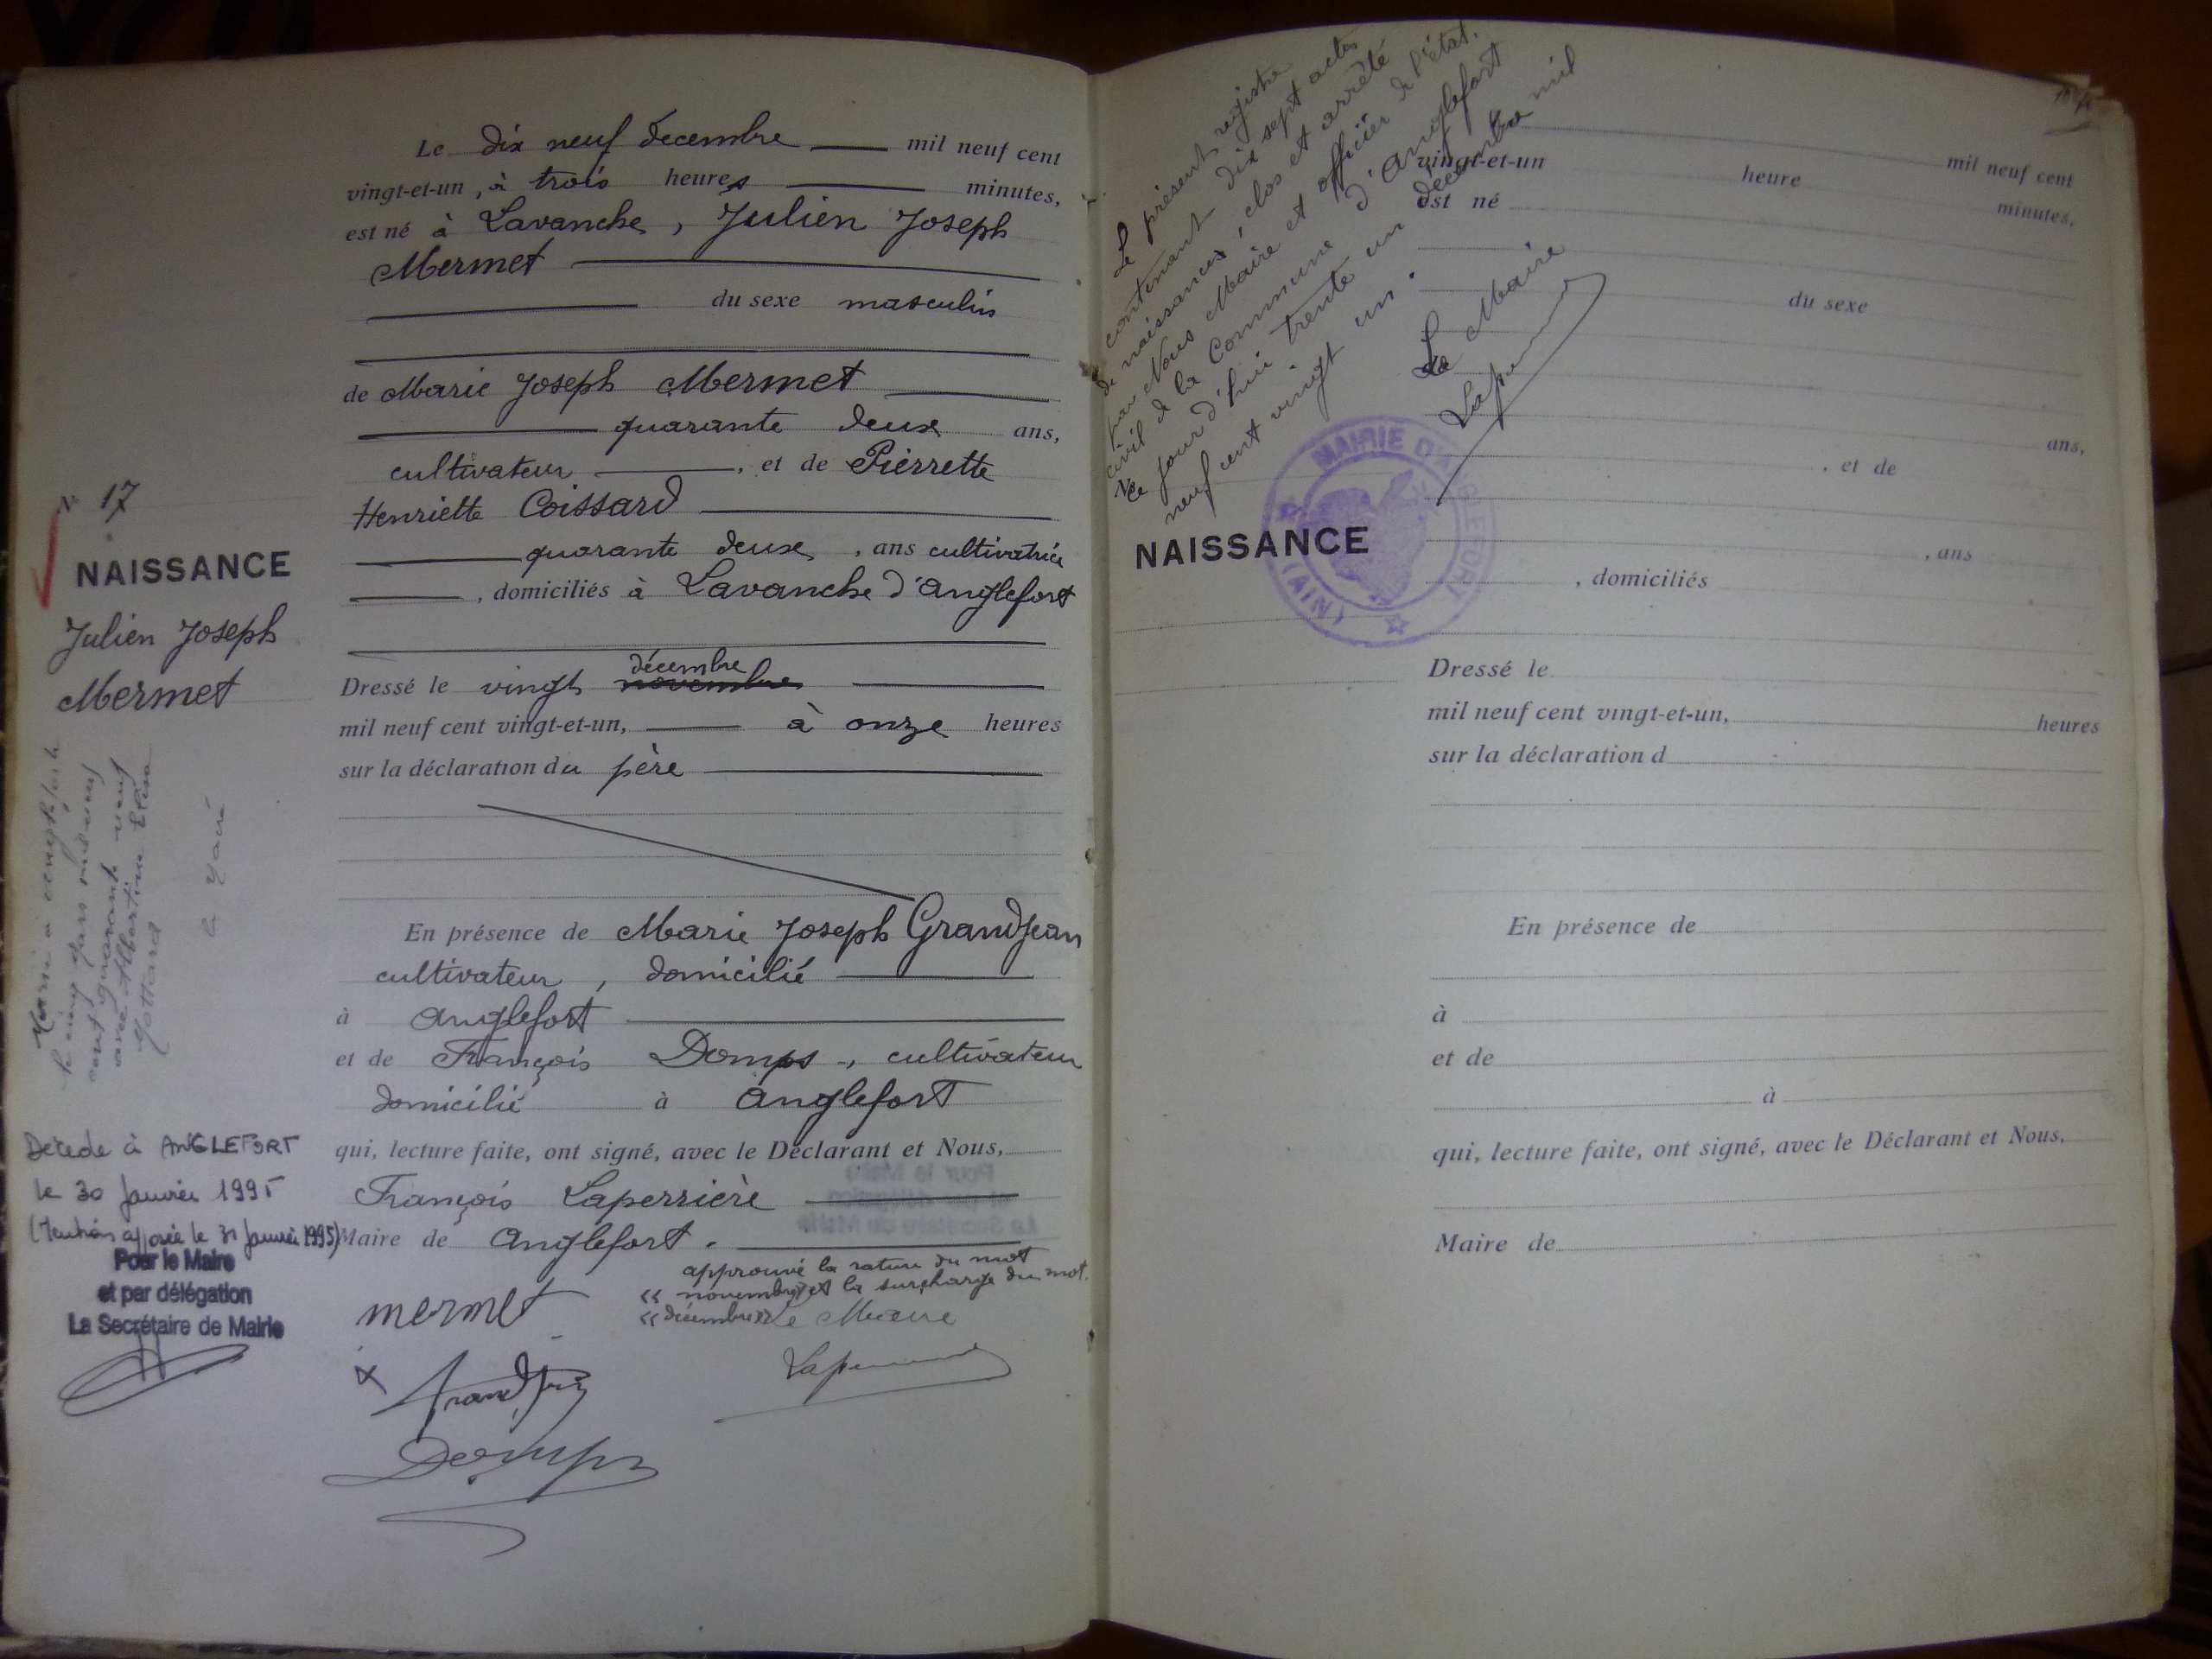 N° 17
NAISSANCE
Julien Joseph
Mermet
Marié à Anglefort
le cinq mars mil neuf
cent quarante neuf
avec Albertine Elisa
Décédé à ANGLEFORT
le 30 Janvier 1995
(Mention apposée le 31 Janvier 1995)
Pour le Maire
et par délégation
La Secrétaire de Mairie
Le dix neuf décembre mil neuf cent
vingt-et-un, à trois heures minutes,
est né à Lavanche, Julien Joseph
Mermet
du sexe masculin
de Marie Joseph Mermet
quarante deux ans,
cultivateur, et de Pierrette
Henriette Coissard
quarante deux, ans cultivatrice
, domiciliés à Lavanche d'Anglefort
décembre
Dressé le vingt novembre
mil neuf cent vingt-et-un, à onze heures
sur la déclaration du père
En présence de Marie Joseph Grandjean
cultivateur, domicilié
à Anglefort
et de François Domps, cultivateur
domicilié à Anglefort
qui, lecture faite, ont signé, avec le Déclarant et Nous,
François Laperrière
Maire de Anglefort.
approuvé la rature du mot
« novembre » et la surcharge du mot
« décembre » Le Maire
mermet
Le présent registre
contenant dix sept actes
de naissances, clos et arrêté
par Nous Maire et officier de l'état
civil de la Commune d'Anglefort
ce jour d'hui trente un décembre mil
neuf cent vingt un.
Le Maire
MAIRIE D'ANGLEFORT
(AIN)
NAISSANCE
mil neuf cent
vingt-et-un heure minutes,
est né
du sexe
ans,
, et de
, ans
, domiciliés
Dressé le
mil neuf cent vingt-et-un, heures
sur la déclaration d
En présence de
à
et de
à
qui, lecture faite, ont signé, avec le Déclarant et Nous,
Maire de